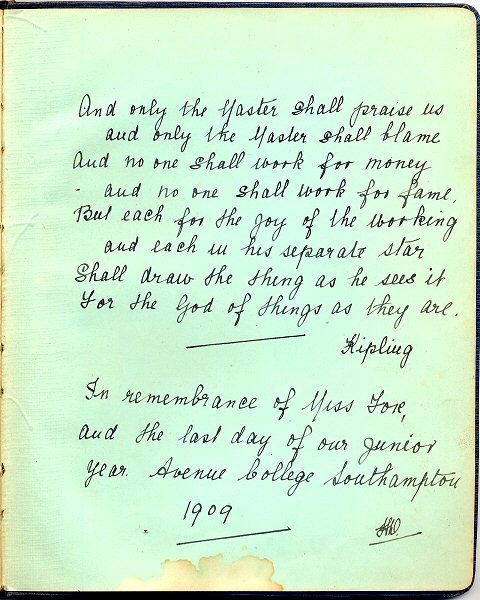 And only the Master shall praise us
and only the Master shall blame
And no one shall work for money
and no one shall work for fame.
But each for the joy of the working
and each in his separate star
Shall draw the thing as he sees it
For the God of things as they are.
Kipling
In remembrance of Miss Fox,
and the last day of our junior
year. Avenue College Southampton
1909